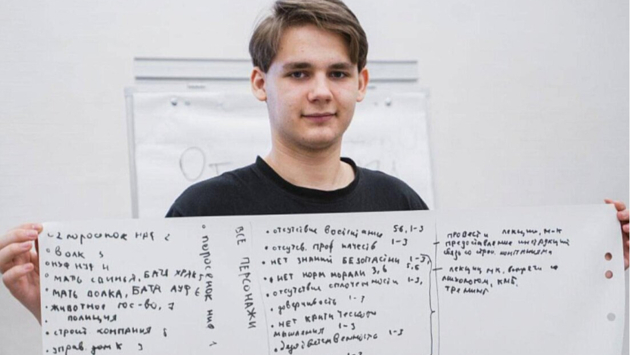 От
2 поросенок НАФ 2
ВОЛК 3
НУФ НЭФ 4
МАТЬ СВИНЬЯ, БАТЯ
МАТЬ ВОЛКА, БАТЯ АУФ 6
ЖИВОТНОЕ ГОС-ВО, 7
ПОЛИЦИЯ
СТРОИТ КОМПАНИЯ
УПРАВ. ДОМ К 3
ПОРОСЕНОК НИФ 1
ВСЕ ПЕРСОНАЖИ
отсутствие воспитания 56, 1-3
отсутсв. проф качеств 1-3
НЕТ ЗНАНИЙ БЕЗОПАСНОСТИ 1-3
НЕТ НОРМ МОРАЛИ 3, 6 5,6
отсутствие сплоченности 1-3,
доверчивость 1-
НЕТ КРИТИЧЕСКОГО
мышления 1-3
1-3
провести лекцию, м-к
предоставление инструкций
компаниям
лекции, мк, с
психологом, КПБ,
тренинг